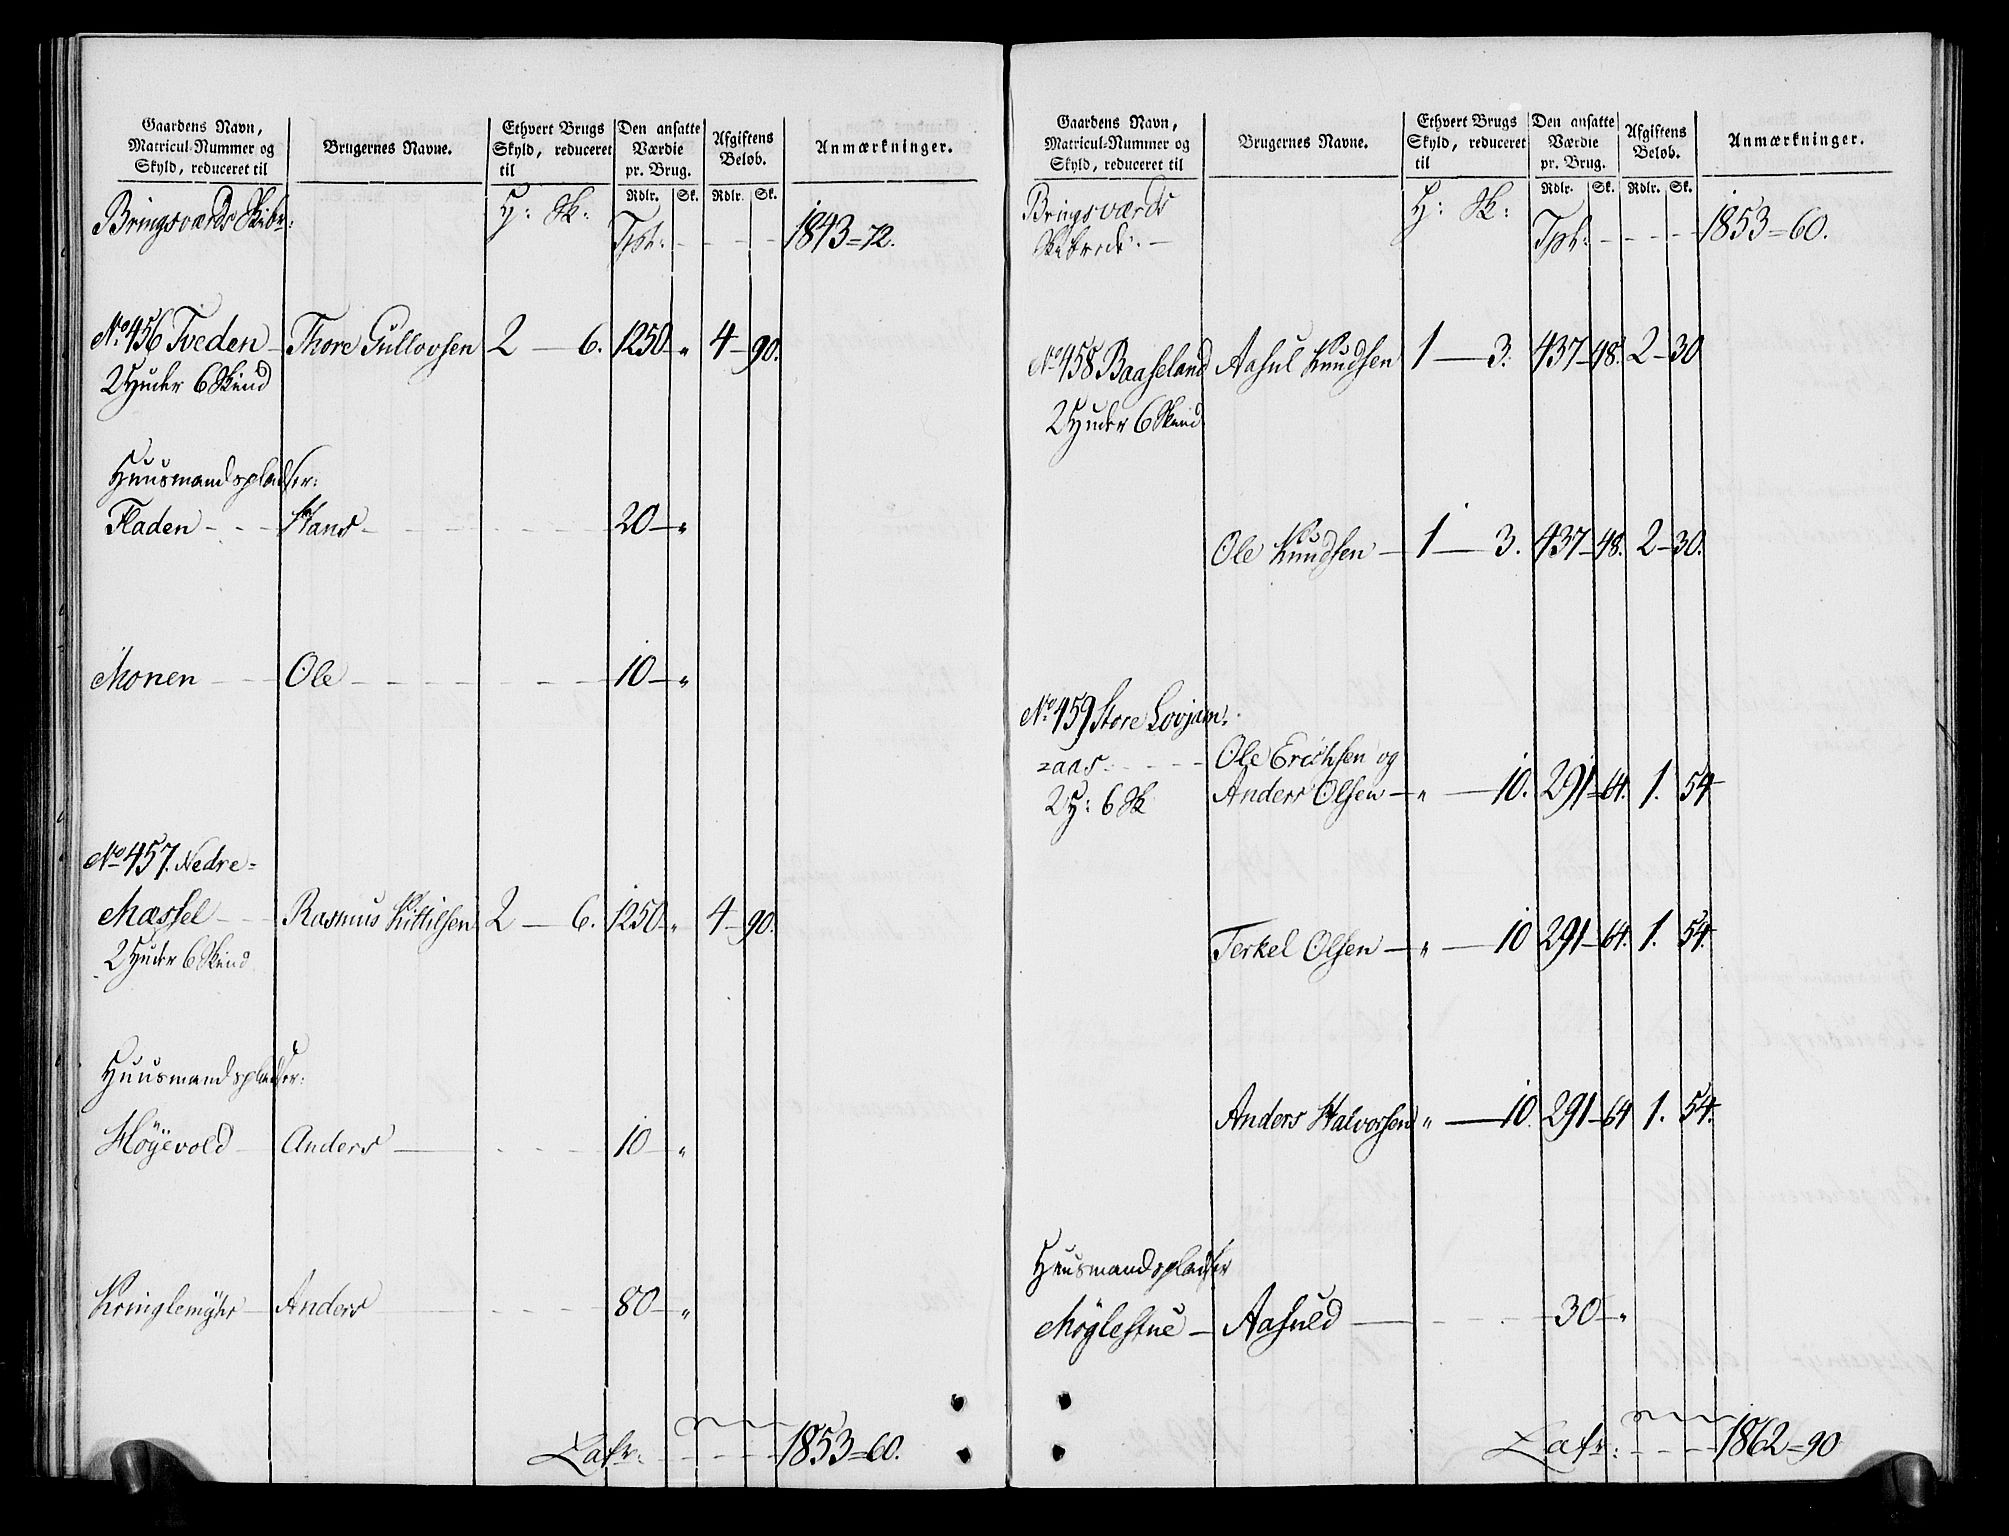 Gaardens Navn, Matricul-Nummer og Skyld, reduceret til
Brugernes Navne.
Ethvert Brugs Skyld, reduceret til
Den ansatte Værdie pr. Brug.
Rdlr. Sk.
Afgiftens Beløb.
Rdlr. Sk.
Anmærkninger.
Bringsværds Skibr: H: Sk:
Tpt: - - - - 1843=72.
No 456 Tveden - Thore Gullovsen 2 - 6. 1250 - " 4 - 90.
2 Huder 6 Skind
Huusmandspladser:
Fladen - - - Hans - - - - 20 - "
Monen - - - Ole - - - - 10 - "
No 457. Nedre=
Mæssel - - - Rasmus Kittilsen 2 - 6. 1250 - " 4 - 90.
2 Huder 6 Skind
Huusmandspladser:
Høyevold - Anders - - - - 10 - "
Kringlemyhr - Anders - - - - 80 - "
Latr: - - - - 1853=60.
Gaardens Navn, Matricul-Nummer og Skyld, reduceret til
Brugernes Navne.
Ethvert Brugs Skyld, reduceret til
Den ansatte Værdie pr. Brug.
Rdlr. Sk.
Afgiftens Beløb.
Rdlr. Sk.
Anmærkninger.
Bringsværds H: Sk:
Skibrede. - Tpt: - - - - 1853=60.
No 458 Baaseland Aasul Knudsen 1 - 3. 437 - 48. 2 - 30
2 Huder 6 Skind
Ole Knudsen - 1 - 3. 437 - 48. 2 - 30.
No 459 Store Lovjom=
=aas. - - - Ole Erichsen og
2 H: 6 Sk Anders Olsen - " - 10. 291 = 64. 1. 54
Terkel Olsen - " - 10 291 - 64. 1. 54.
Anders Halvorsen " - 10. 291 - 64 1. 54.
Huusmandspladser
Møglestue - Aasuld - - - - 30 - "
Latr: - - - - 1862=90